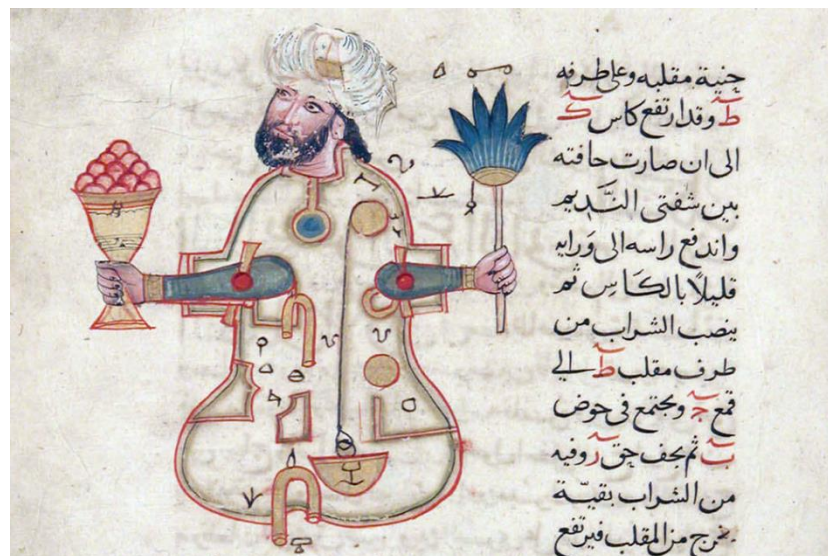 جنية مقلبه وعلى طرفه
ط وقد ارتفع كاس ك
الى ان صارت حافته
بين شفتى النديم
واندفع راسه الى ورايه
قليلاً بالكاس ثم
ينصب الشراب من
طرف مقلب ط الي
قمع ج ويجتمع في حوض
ب ثم يجف حق ر وفيه
من الشراب بقية
خرج من المقلب فيرتفع